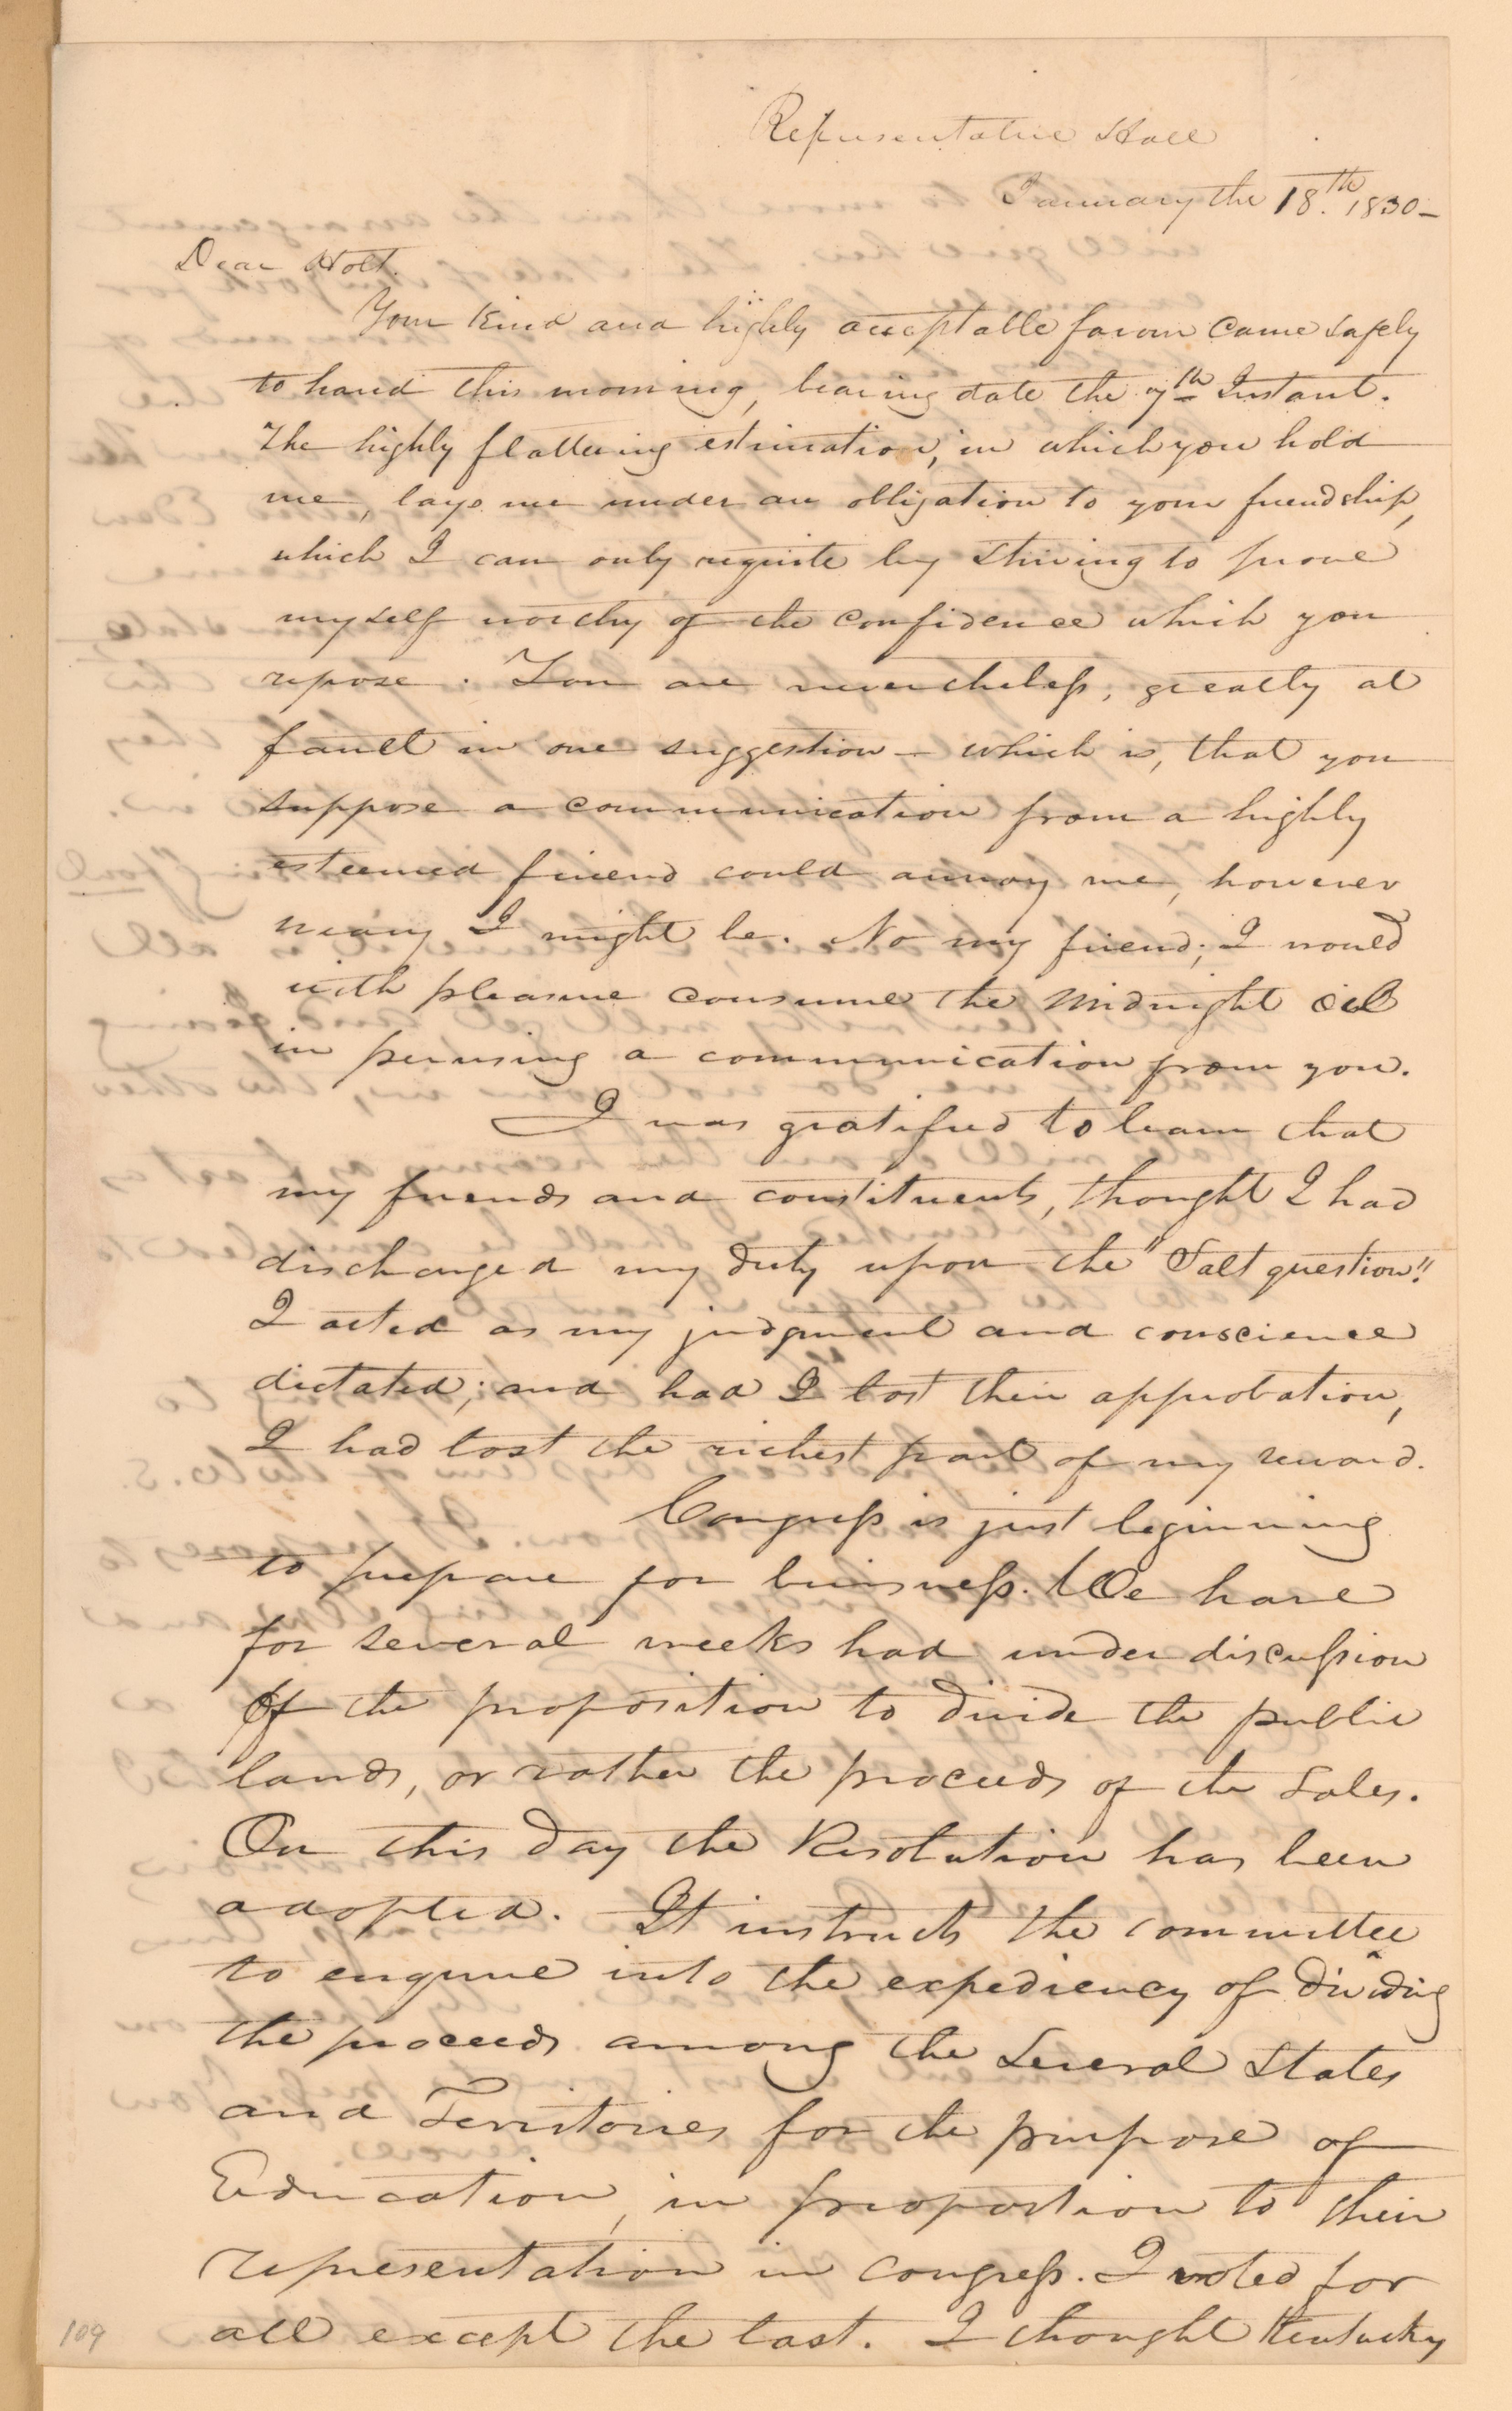 Representative Hall
January the 18.th 1830-
Dear Holt.
Your kind and highly acceptable favour came safely
to hand this morning, bearing date the 7th Instant.
The highly flattering estimation, in which you hold
me, lays me under an obligation to your friendship,
which I can only requite by striving to prove
myself worthy of the confidence which you
repose. You are nevertheless, greatly at
fault in one suggestion - which is, that you
suppose a communication from a highly
esteemed friend could annoy me, however
weary I might be. No my friend; I would
with pleasure consume the midnight oil
in perusing a communication from you.
I was gratified to learn that
my friends and constituents, thought I had
discharged my duty upon the "Salt question"
I acted as my judgment and conscience
dictated; and had I lost their approbation,
I had lost the richest part of my reward.
Congress is just beginning
to prepare for business. We have
for several weeks had under discussion
of the proposition to divide the public
lands, or rather the proceeds of the Sales.
On this day the Resolution has been
adopted. It instructs the committee
to enquire into the expediency of dividing
the proceeds among the Several States
and Territories for the purpose of
Education, in proportion to their
representation in Congress. I voted for
all except the last. I thought Kentucky
109